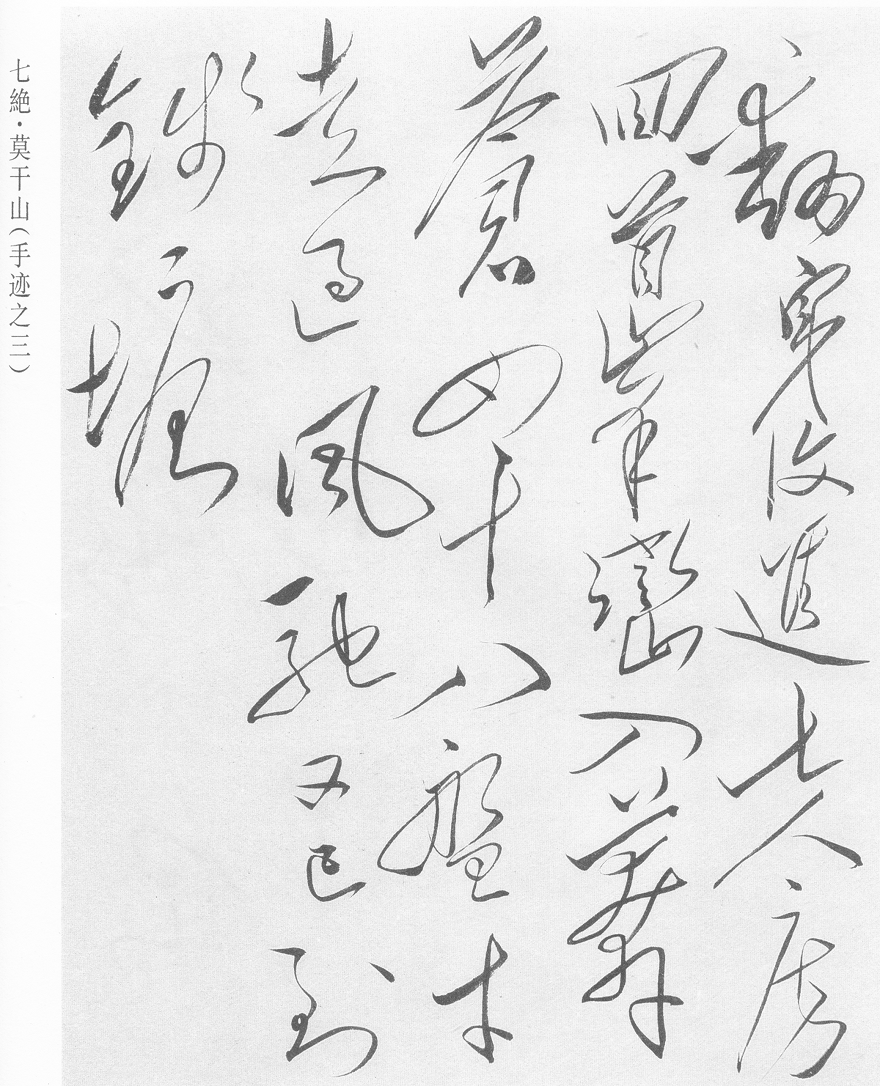 翻身復進七人房
回首峯巒入莽
蒼四十八盤才
走過風馳又已到
錢塘
七絶·莫干山(手迹之三)